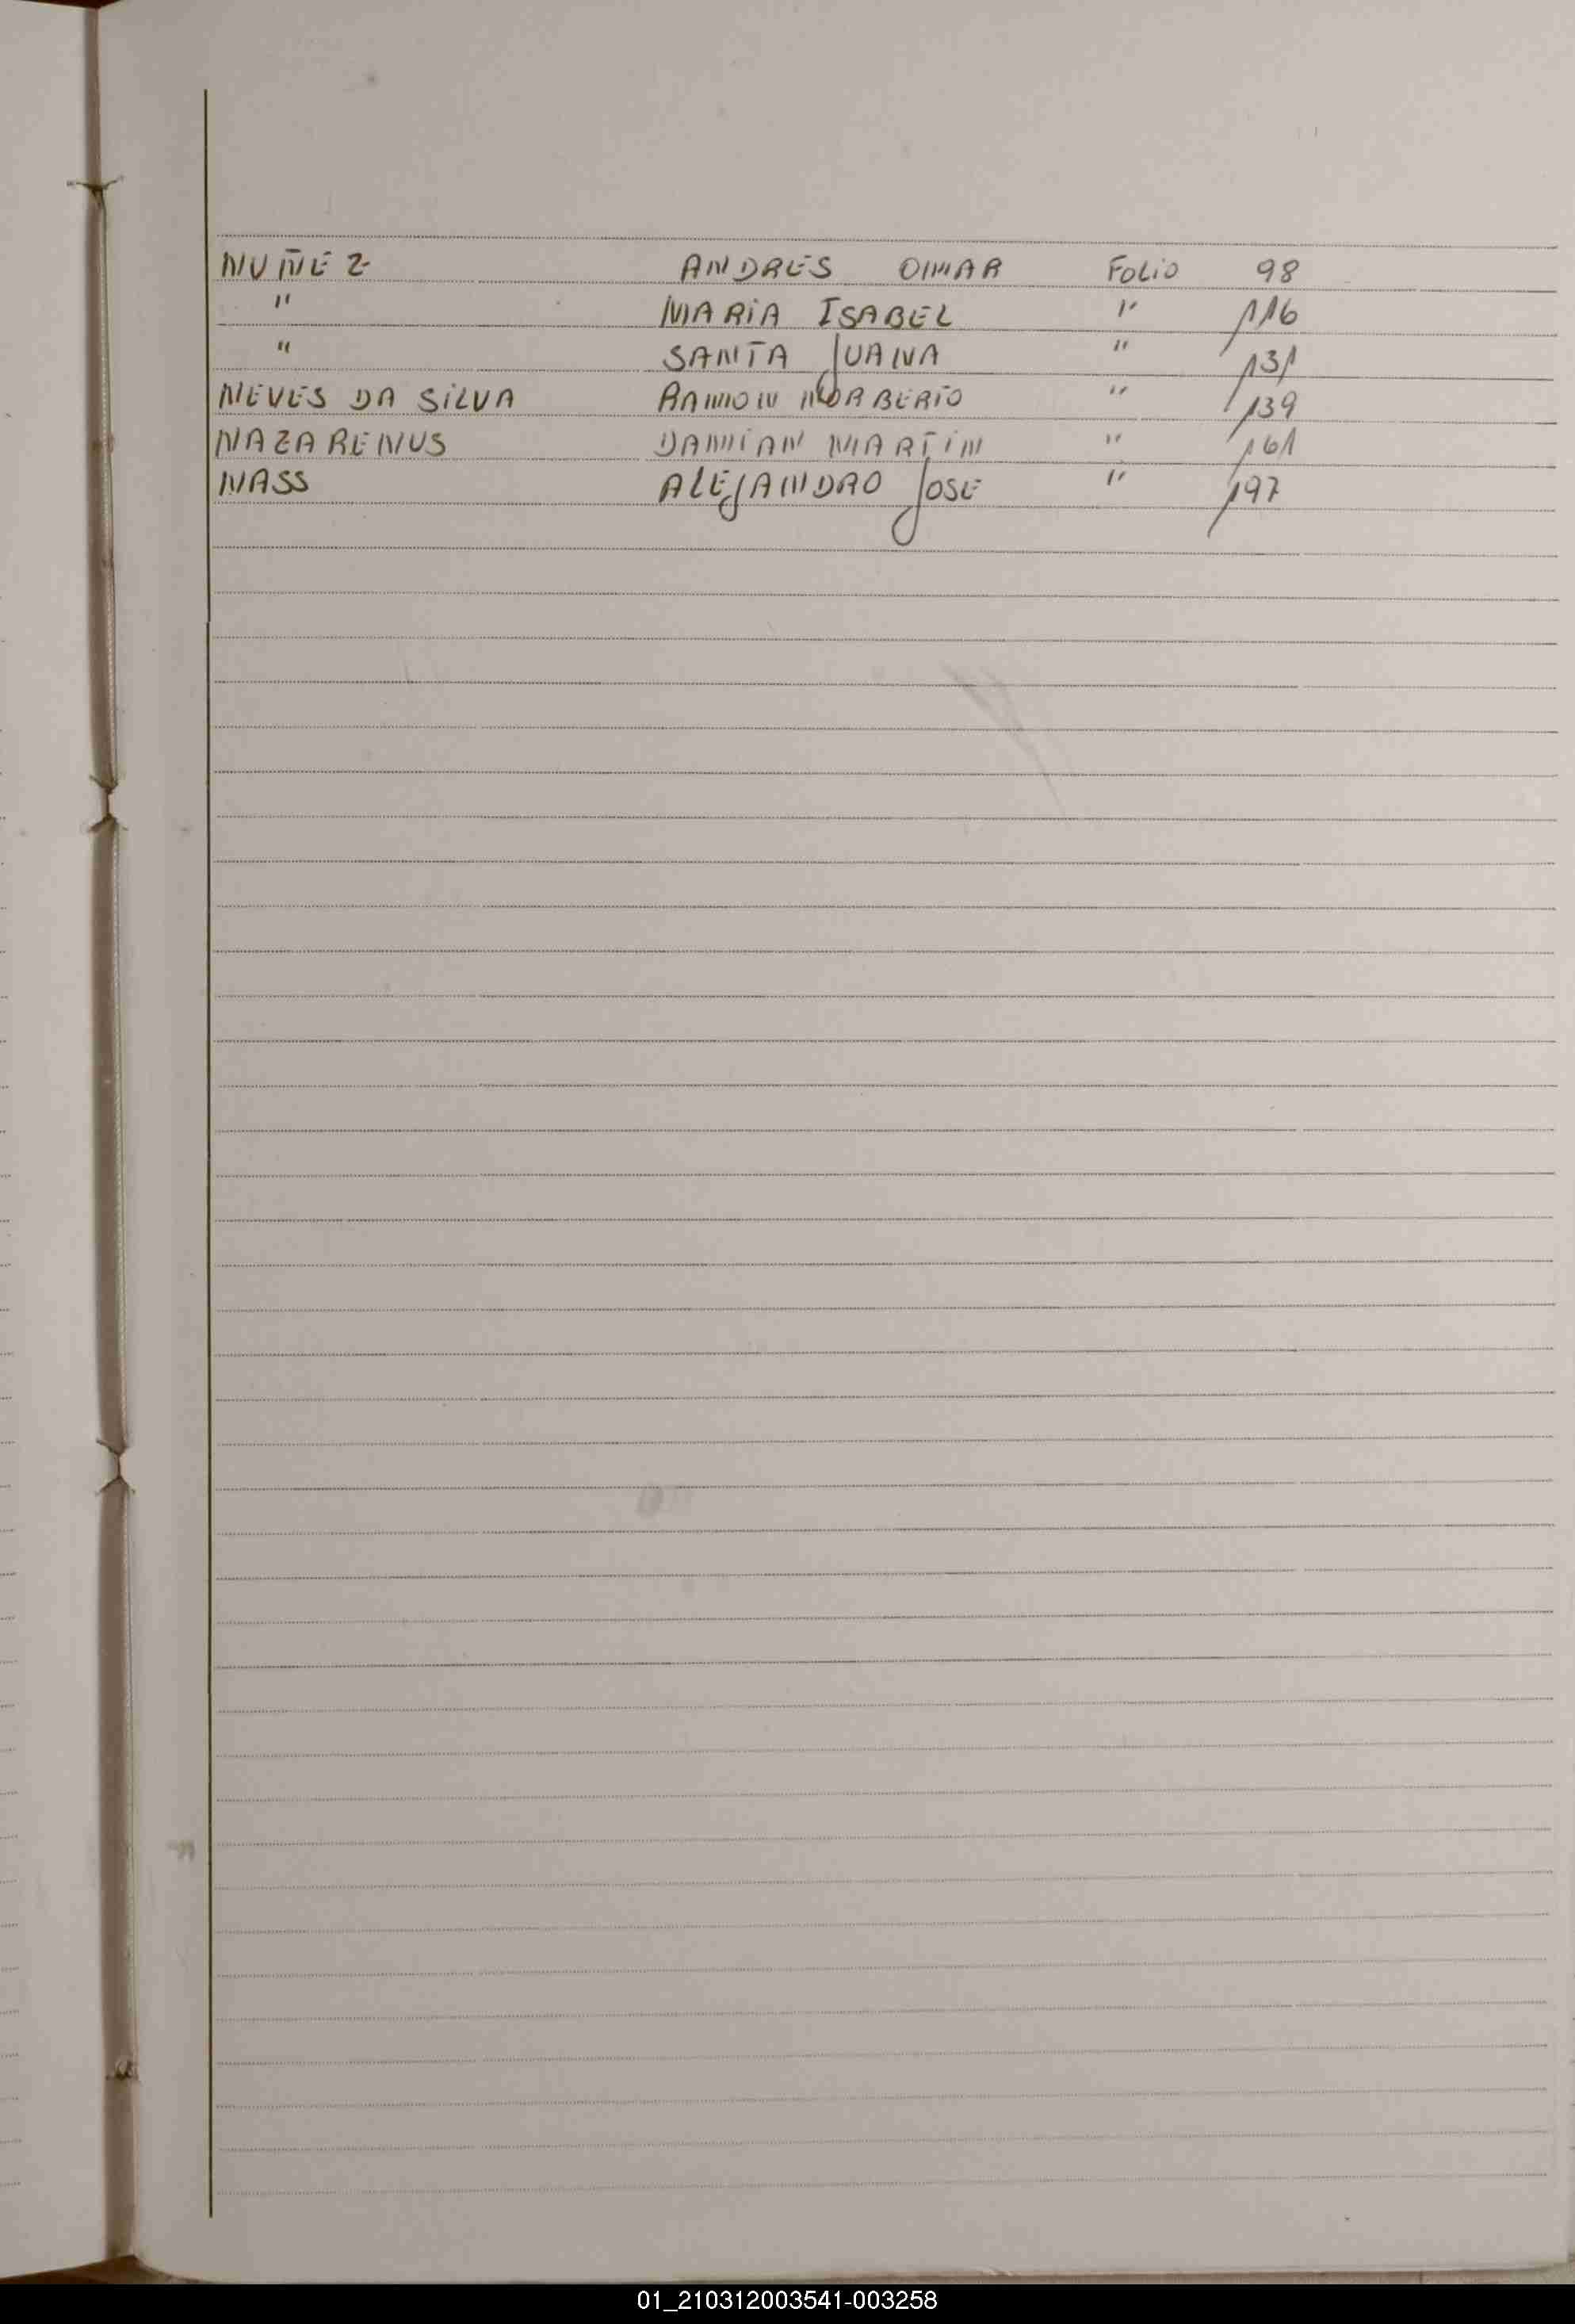 NUÑEZ ANDRES OMAR FOLIO 98
" MARIA ISABEL " 116
" SANTA JUANA " 131
NEVES DA SILVA RAMON NORBERTO " 139
NAZARENUS DAMIAN MARTIN " 161
NASS ALEJANDRO JOSE " 197
01_210312003541-003258